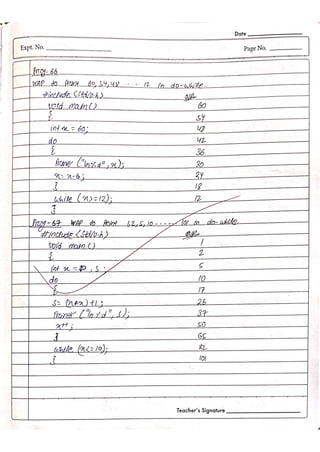 Date
Expt. No.
Page No.
Prog-66
WAP to print 60,54,48 ..... 12 in do-while
#include<stdio.h>
void main()
{
int x = 60;
do
{
printf ("\n%d", x);
x=x-6;
}
while (x>=12);
}
O/P
60
54
48
42
36
30
24
18
12
Prog-67 WAP to print 1,2,5,10 in do-while
#include<stdio.h>
void main()
{
int x = , s;
do
{
s= (x*x)+1;
Printf ("\n%d", s);
x++;
}
while (x<=10);
}
O/P
1
2
5
10
17
26
37
50
65
82
101
Teacher's Signature